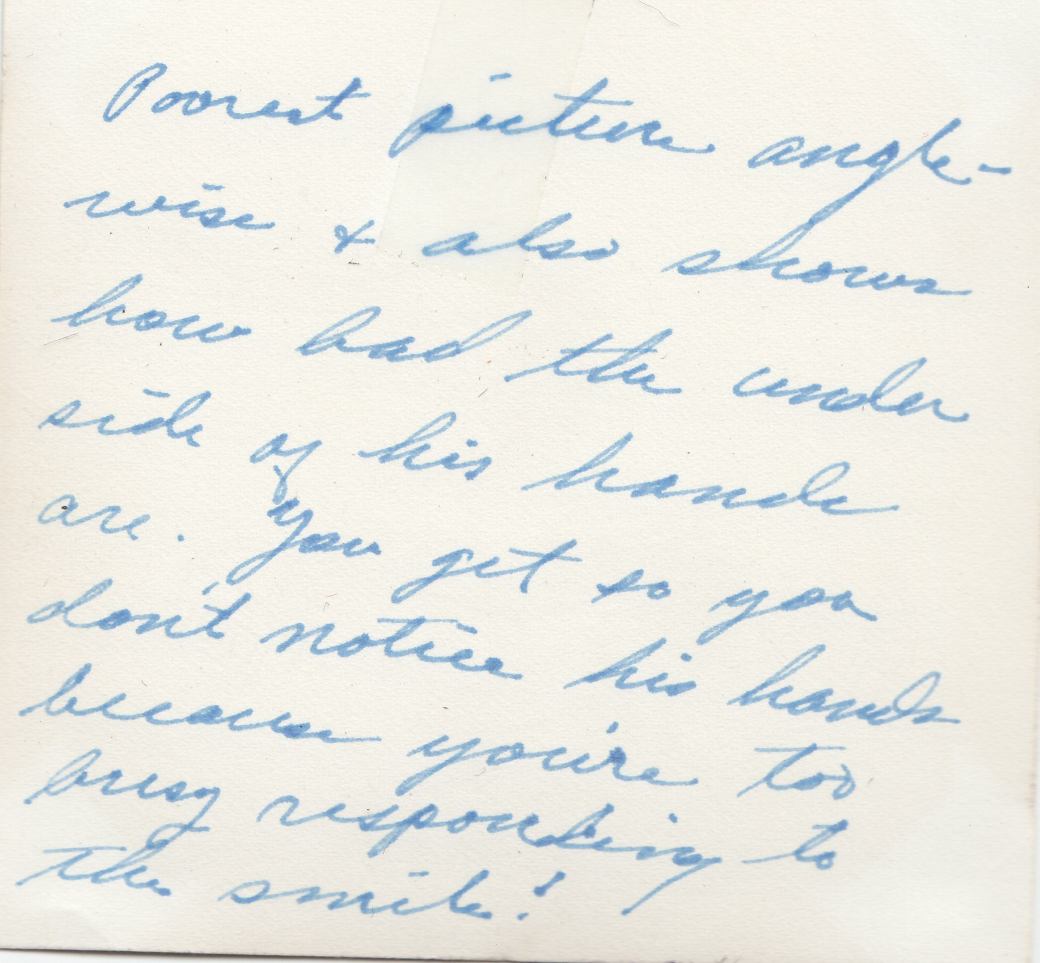 Poorest picture angle-
wise & also shows
how bad the under
side of his hands
are. You get so you
don't notice his hands
because you're too
busy responding to
the smile!